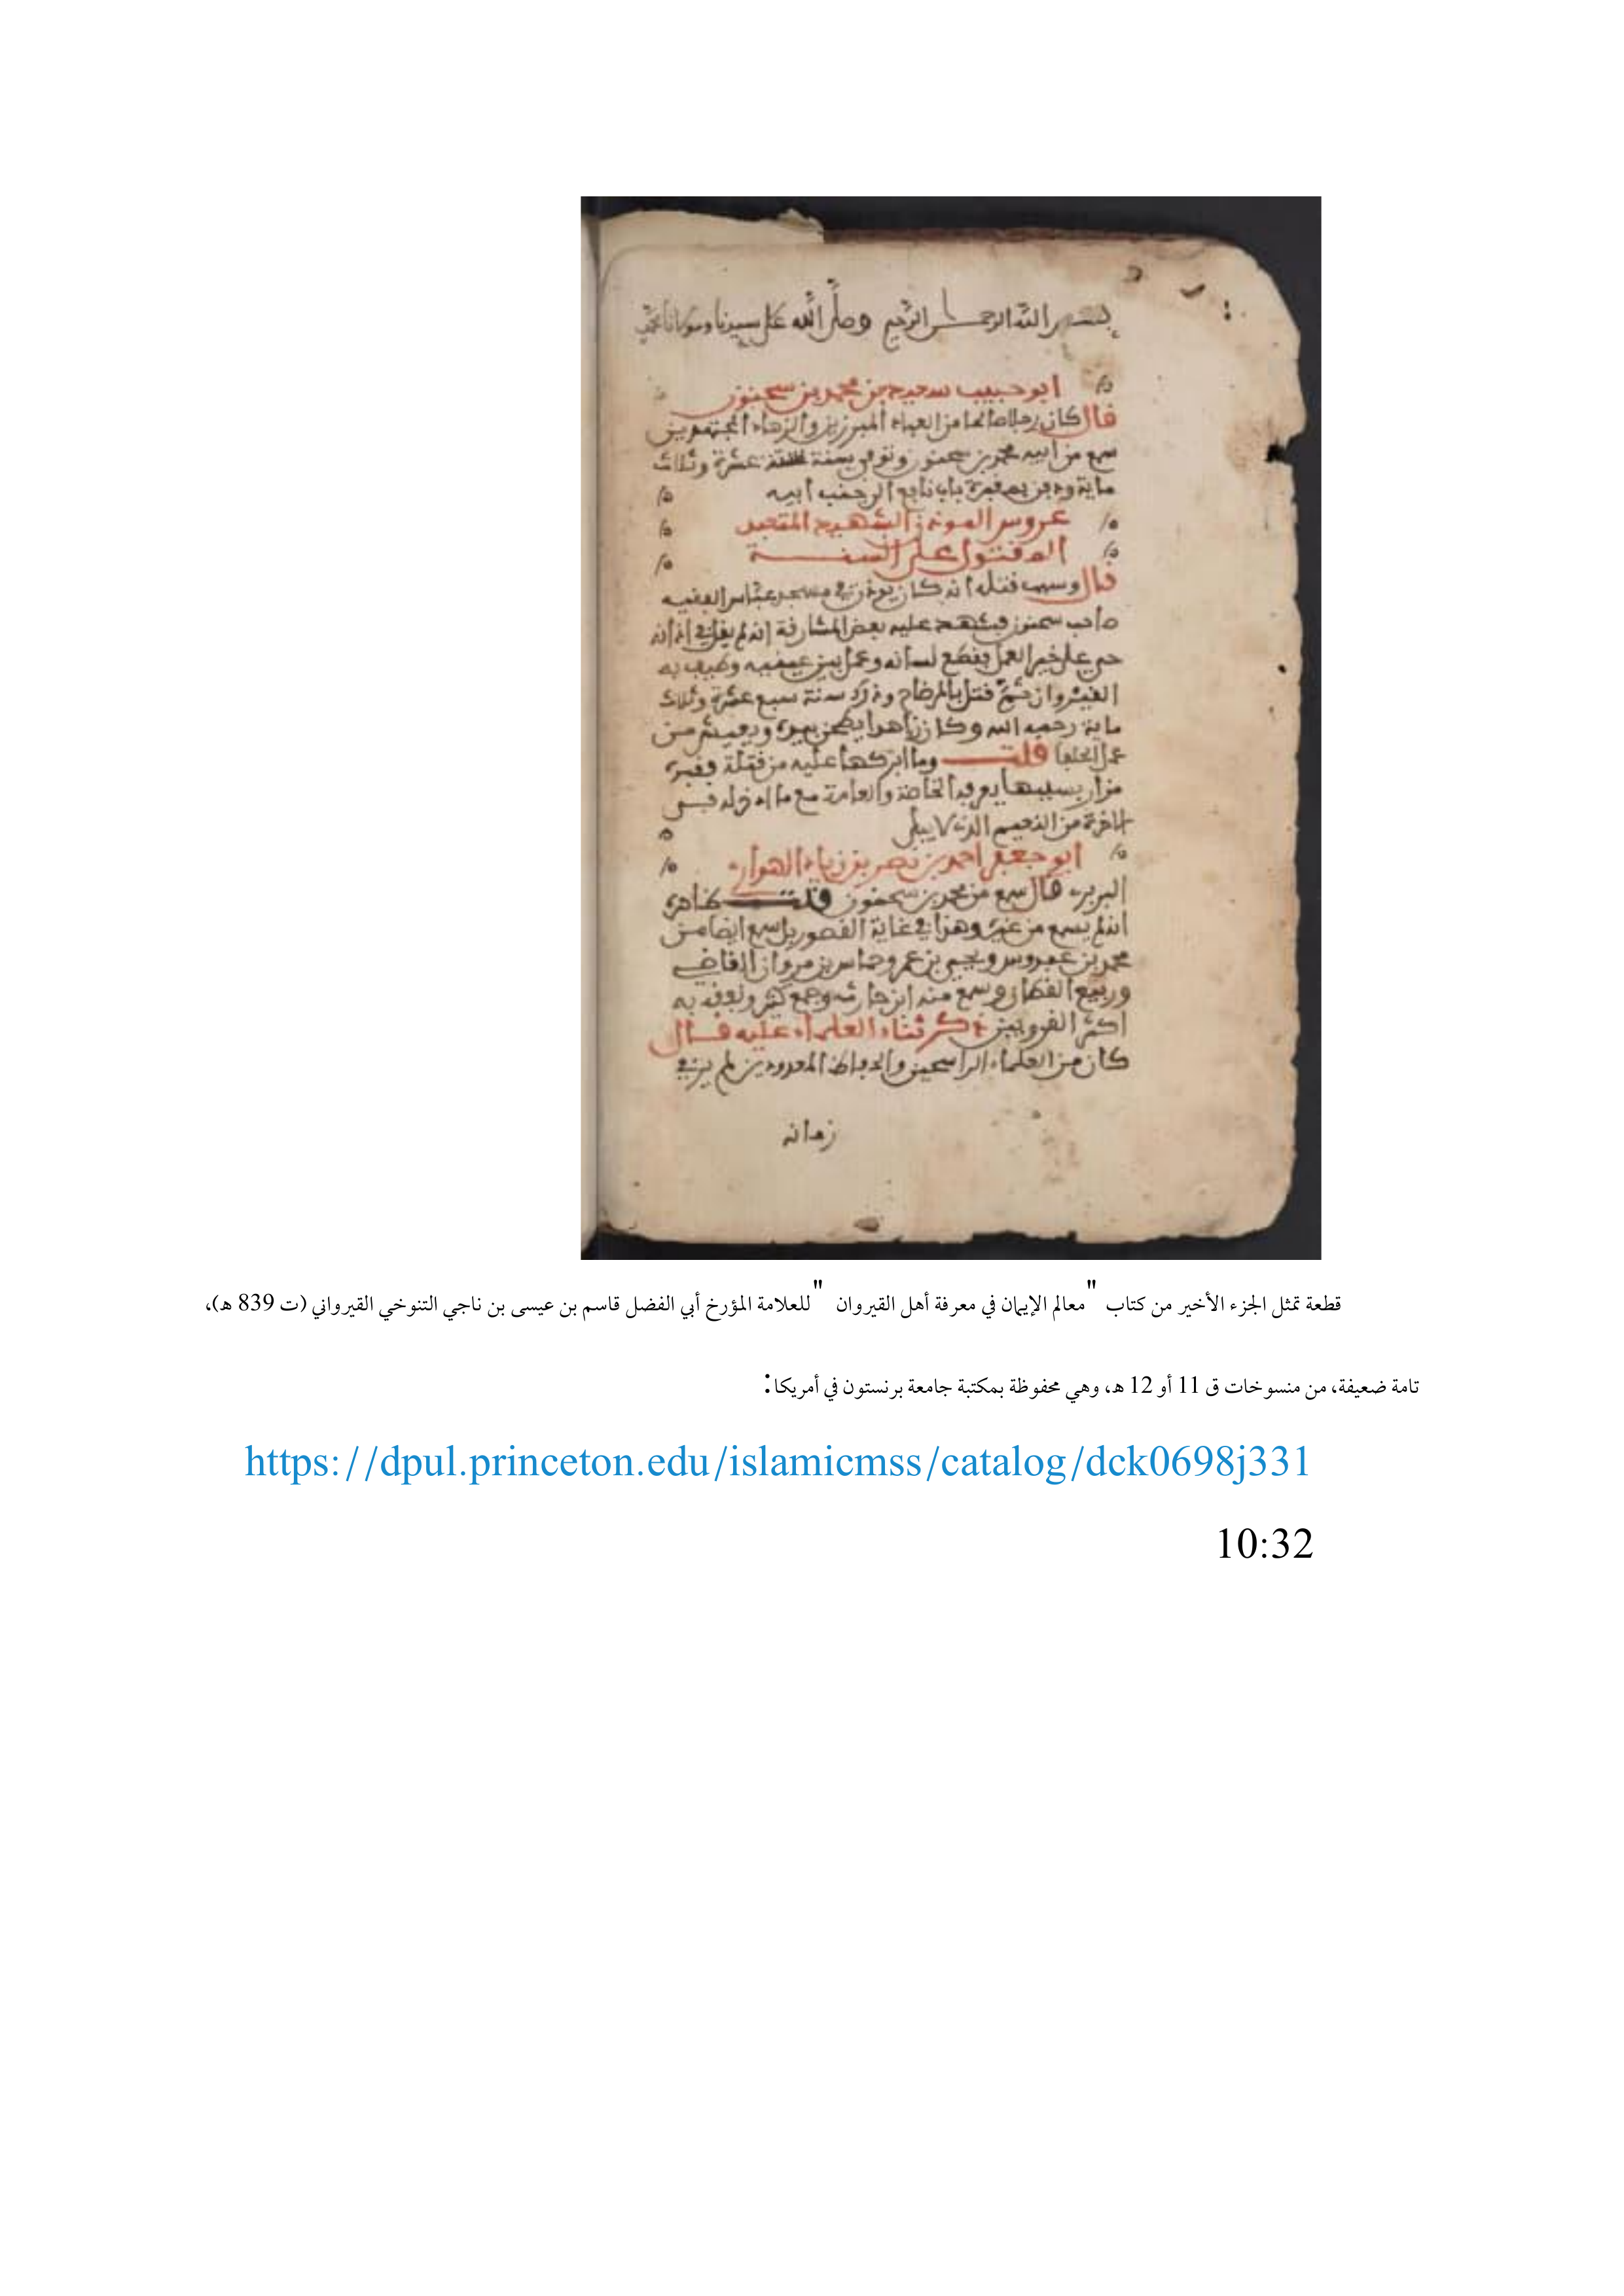 بسم الله الرحمن الرحيم وصلى الله على سيدنا ومولانا محمد
ابو حبيب سعيد بن محمد بن سحنون
قال كان رجلا صالحا من العباد المبرزين والزهاد المجتهدين
سمع من ابيه محمد بن سحنون وتوفي سنة عشرة وثلاث
ماية ودفن بمقبرة باب نافع الى جنب ابيه
عروس الموذن الشهيد المتعبد
المقتول على السنة
قال وسبب قتله انه كان يوذن في مسجد عباس الفقيه
صاحب سحنون فشهد عليه بعض المشارقة انه لم يقل في اذانه
حي على خير العمل فقطع لسانه وعمل بين عينيه وطيف به
القيروان ثم قتل بالرماح وذلك سنة سبع عشرة وثلاث
ماية رحمه الله وكان زاهدا يطحن بيده ويعيش من
عمل الحلفا قلت وما ابركها عليه من قتلة فقبره
مزار بسببها يعرفه الخاصة والعامة مع ما ادخر له في
الاخرة من النعيم الذي لا يبلى
ابو جعفر احمد بن نصر بن زياد الهواري
البربري قال سمع من محمد بن سحنون قلت ظاهره
انه لم يسمع من غيره وهذا في غاية القصور بل سمع ايضا من
محمد بن عبدوس ويحيى بن عمر وحماس بن مروان القاضي
وربيع القطان وسمع منه ابن حارث وجمع كثير وتفقه به
اكثر القرويين ذكر ثناء العلماء عليه قال
كان من العلماء الراسخين والحفاظ المعدودين لم يزل في
زمانه
قطعة تمثل الجزء الأخير من كتاب "معالم الإيمان في معرفة أهل القيروان" للعلامة المؤرخ أبي الفضل قاسم بن عيسى بن ناجي التنوخي القيرواني (ت 839 هـ)،
تامة ضعيفة، من منسوخات ق 11 أو 12 هـ، وهي محفوظة بمكتبة جامعة برنستون في أمريكا:
https://dpul.princeton.edu/islamicmss/catalog/dck0698j331
10:32